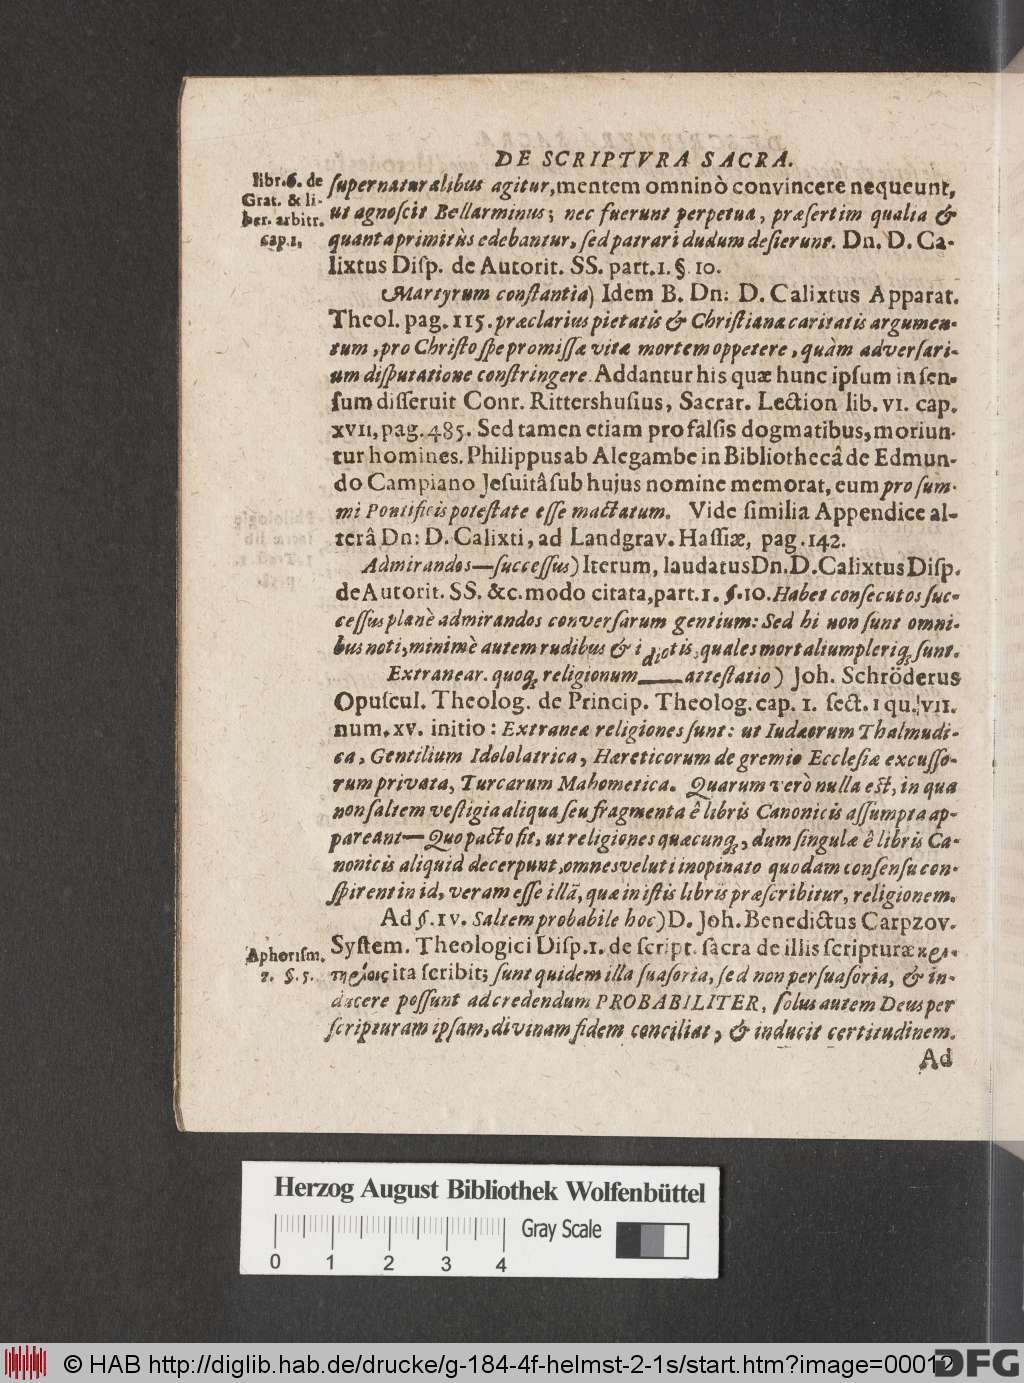 DE SCRIPTVRA SACRA.
libr. 6. de
Grat. & li-
ber. arbitr.
cap. 1,
ſupernaturalibus agitur, mentem omninò convincere nequeunt,
ut agnoſcit Bellarminus; nec fuerunt perpetua, præſertim qualia &
quanta primitùs edebantur, ſed patrari dudum deſierunt. Dn. D. Ca-
lixtus Diſp. de Autorit. SS. part. 1. §. 10.
Martyrum conſtantia) Idem B. Dn: D. Calixtus Apparat.
Theol. pag. 115. præclarius pietatis & Chriſtianæ caritatis argumen-
tum, pro Chriſto ſpe promiſſæ vitæ mortem oppetere, quàm adverſari-
um diſputatione conſtringere. Addantur his quæ hunc ipſum in ſen-
ſum diſſeruit Conr. Rittershuſius, Sacrar. Lection lib. VI. cap.
XVII, pag. 485. Sed tamen etiam pro falſis dogmatibus, moriun-
tur homines. Philippus ab Alegambe in Bibliothecâ de Edmun-
do Campiano Jeſuitâ ſub hujus nomine memorat, eum pro ſum-
mi Pontificis poteſtate eſſe mactatum. Vide ſimilia Appendice al-
terâ Dn: D. Calixti, ad Landgrav. Haſſiæ, pag. 142.
Admirandos—ſucceſſus) Iterum, laudatus Dn. D. Calixtus Diſp.
de Autorit. SS. &c. modo citata, part. 1. §. 10. Habet conſecutos ſuc-
ceſſus planè admirandos converſarum gentium: Sed hi non ſunt omni-
bus noti, minimè autem rudibus & idiotis, quales mortalium pleriq; ſunt.
Extranear. quoq; religionum——atteſtatio) Joh. Schröderus
Opuſcul. Theolog. de Princip. Theolog. cap. 1. ſect. 1 qu. VII.
num. XV. initio: Extraneæ religiones ſunt: ut Iudæorum Thalmudi-
ca, Gentilium Idololatrica, Hæreticorum de gremio Eccleſiæ excuſſo-
rum privata, Turcarum Mahometica. Quarum verò nulla eſt, in qua
non ſaltem veſtigia aliqua ſeu fragmenta ê libris Canonicis aſſumpta ap-
pareant—Quo pacto fit, ut religiones quæcunq;, dum ſingulæ ê libris Ca-
nonicis aliquid decerpunt, omnes veluti inopinato quodam conſenſu con-
ſpirent in id, veram eſſe illã, quæ in iſtis libris præſcribitur, religionem.
Ad §. IV. Saltem probabile hoc) D. Joh. Benedictus Carpzov.
Aphoriſm.
2. §. 5.
Syſtem. Theologici Diſp. 1. de ſcript. ſacra de illis ſcripturæ κρι-
τηρίοις ita ſcribit; ſunt quidem illa ſuaſoria, ſed non perſuaſoria, & in-
ducere poſſunt ad credendum PROBABILITER, ſolus autem Deus per
ſcripturam ipſam, divinam fidem conciliat, & inducit certitudinem.
Ad
Herzog August Bibliothek Wolfenbüttel
Gray Scale
0 1 2 3 4
© HAB http://diglib.hab.de/drucke/g-184-4f-helmst-2-1s/start.htm?image=00012
DFG